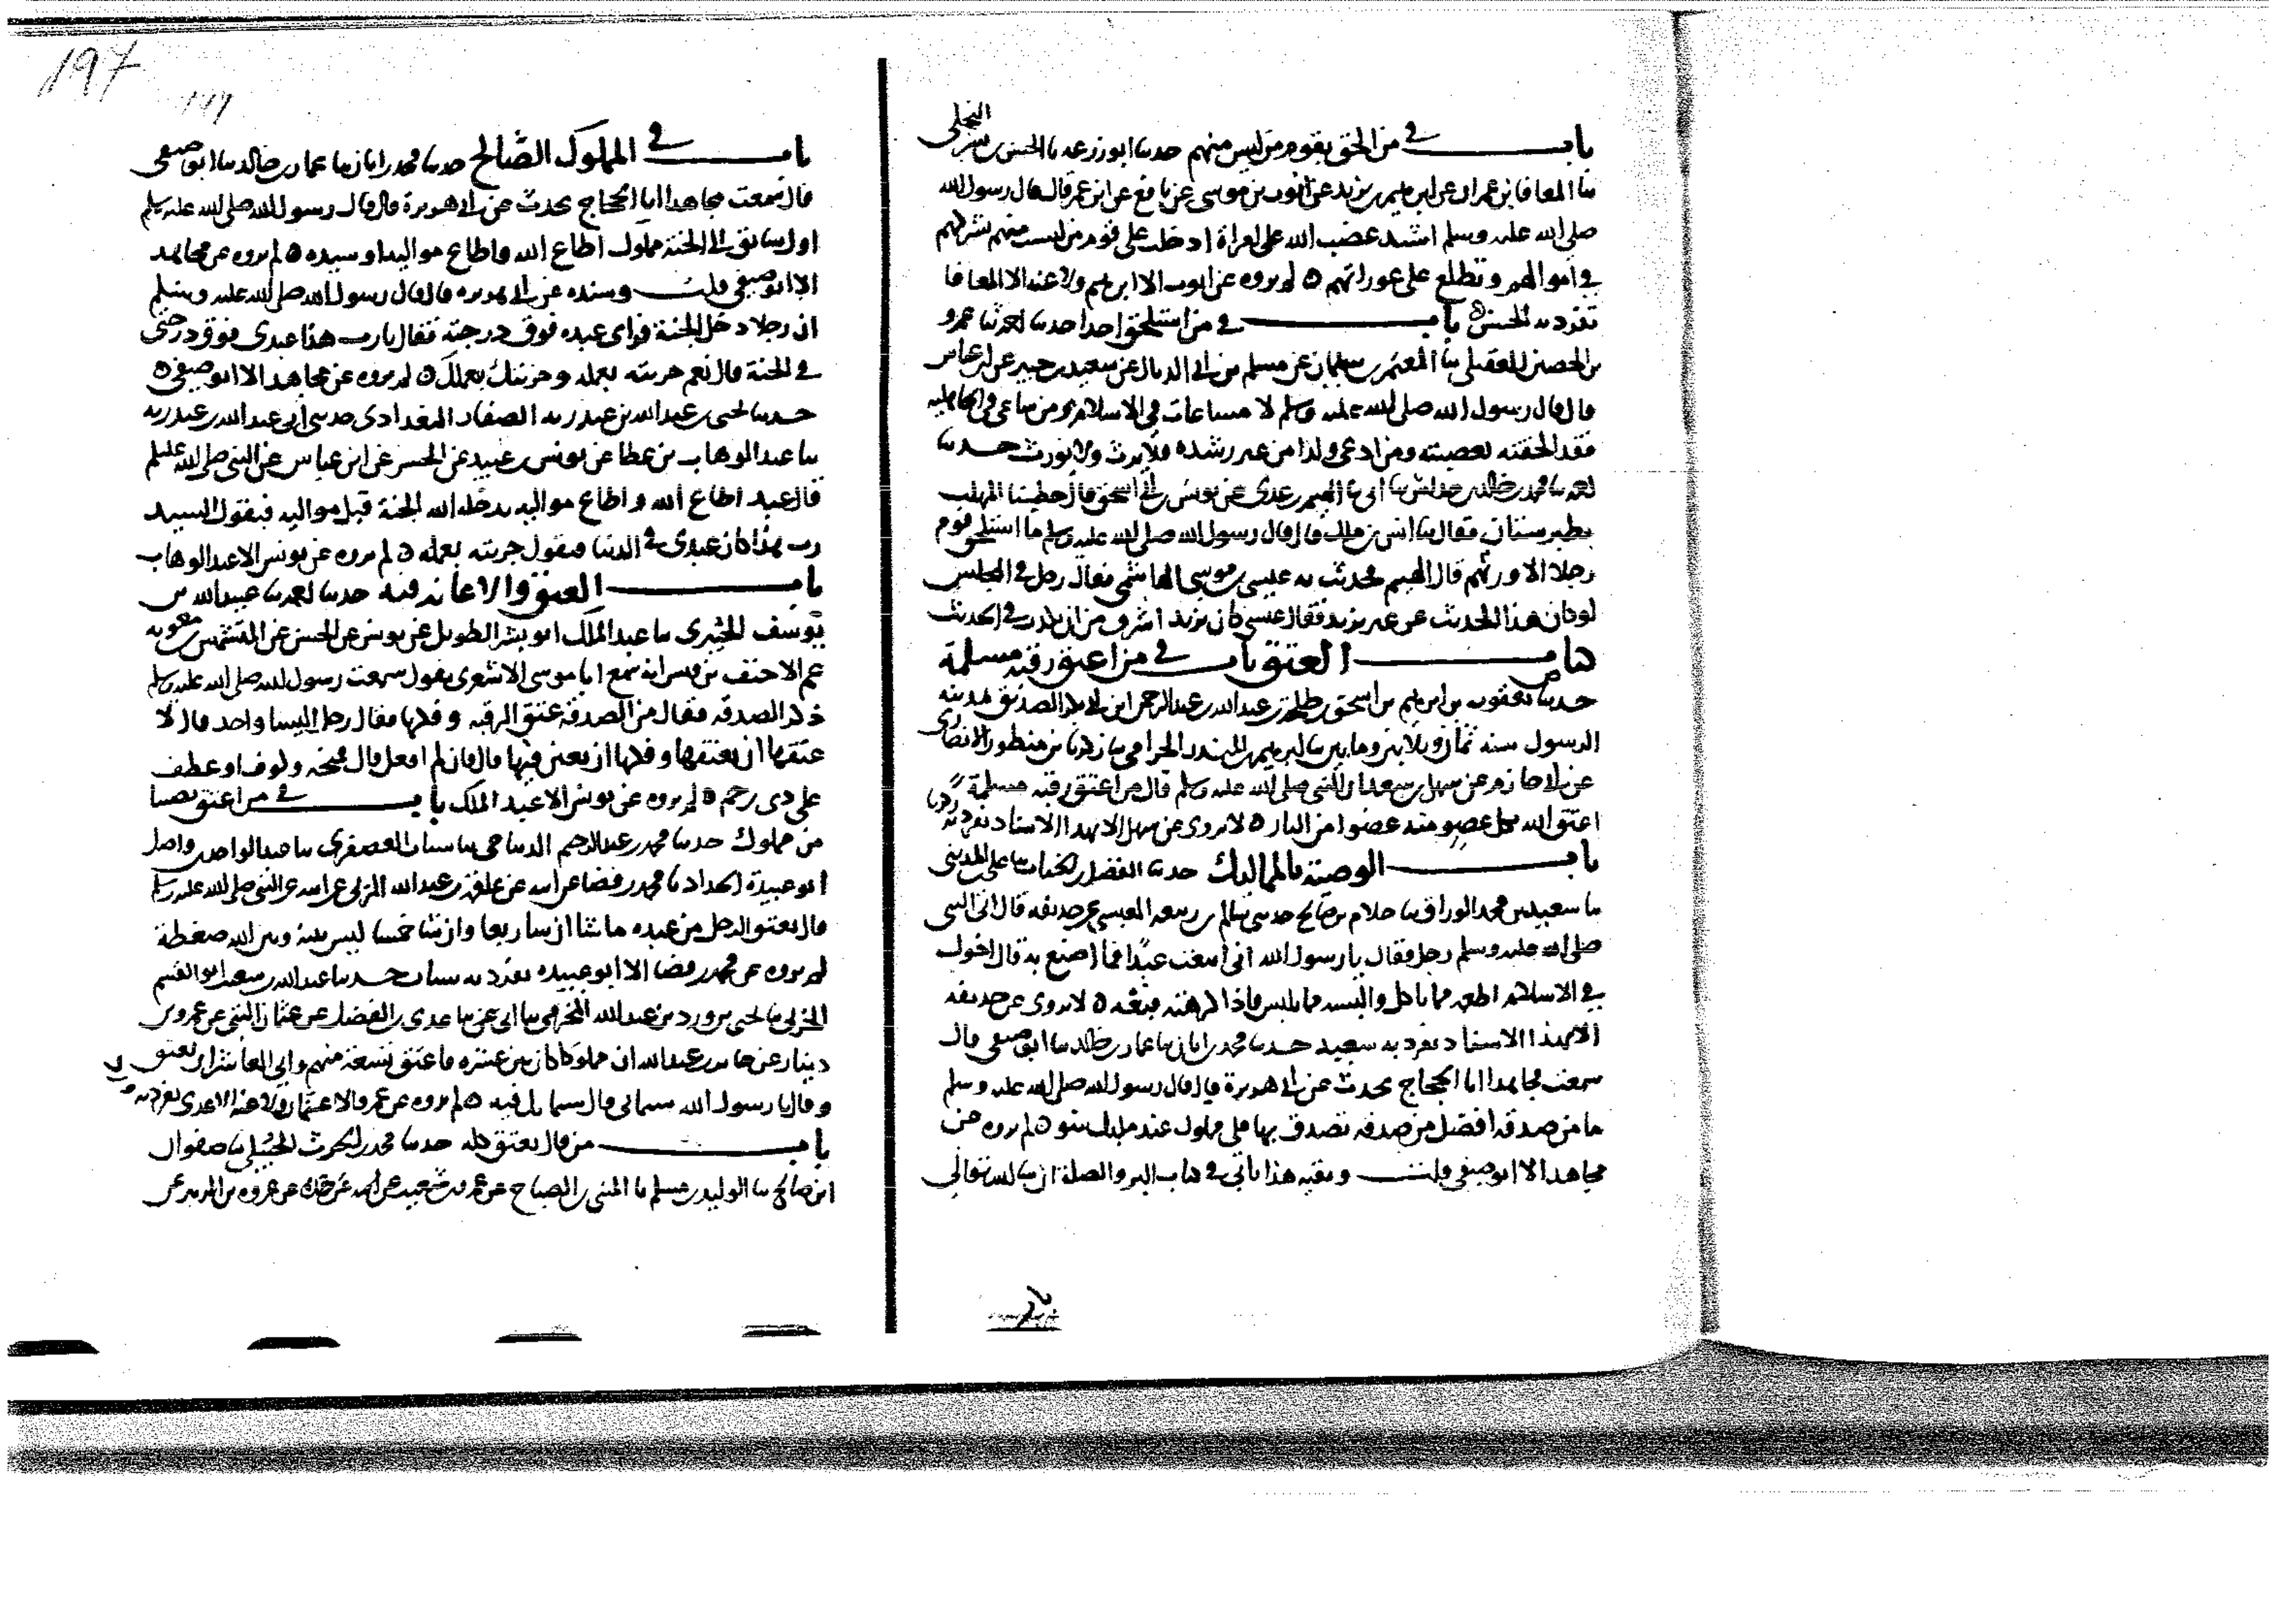 باب في من الحق بقوم من ليس منهم حدثنا ابو زرعه ثنا الحسن بن بشر البجلي
ثنا المعافا بن عمران عن ابرهيم بن يزيد عن ايوب بن موسى عن نافع عن ابن عمر قال قال رسول الله
صلى الله عليه وسلم اشتد غضب الله على امراة ادخلت على قوم من ليس منهم يشركهم
في اموالهم وتطلع على عوراتهم ٥ لم يروه عن ايوب الا ابرهيم ولا عنه الا المعافا
تفرد به الحسن ٥ باب في من استلحق احدا حدثنا احمد ثنا عمرو
بن الحصين العقيلي ثنا المعتمر بن سليمان عن مسلم بن ابي الذيال عن سعيد بن جبير عن ابن عباس
قال قال رسول الله صلى الله عليه وسلم لا مساعات في الاسلام ومن ساعى في الجاهليه
فقد الحقته بعصبته ومن ادعى ولدا من غير رشده فلا يرث ولا يورث حدثنا
احمد ثنا محمد بن خالد بن خداش ثنا ابي ثنا الهيثم بن عدي عن يونس بن ابي اسحق قال خطبنا المهلب
بطبرستان فقال ثنا انس بن ملك قال قال رسول الله صلى الله عليه وسلم ما استلحق قوم
رجلا الا ورثهم قال الهيثم فحدثت به عيسى بن موسى الهاشمي فقال رجل في المجلس
لو كان هذا الحديث عن غير يزيد فقال عيسى كان يزيد اشرف من ان يكذب في الحديث
كتاب العتق باب في من اعتق رقبة مسلمة
حدثنا يعقوب بن ابرهيم بن اسحق بن طلحة بن عبد الله بن عبد الرحمن ابن ابي بكر الصديق بمدينه
الرسول سنه ثمان وثلاثين وماتين ثنا ابرهيم بن المنذر الحزامي ثنا زكريا بن منظور الانصاري
عن ابي حازم عن سهل بن سعد ان النبي صلى الله عليه وسلم قال من اعتق رقبه مسلمة
اعتق الله بكل عضو منه عضوا من النار ٥ لا يروى عن سهل الا بهذا الاسناد تفرد به زكريا
باب الوصية بالمماليك حدثنا الفضل بن الحباب ثنا علي المديني
ثنا سعيد بن محمد الوراق ثنا حلام بن صالح حدثني سالم بن ربيعه العبسي عن حذيفه قال اتى النبي
صلى الله عليه وسلم رجل فقال يا رسول الله اني ابتعت عبدا فما اصنع به قال اخوك
في الاسلام اطعمه مما تاكل والبسه مما تلبس فاذا كرهته فبعه ٥ لا يروى عن حذيفه
الا بهذا الاسناد تفرد به سعيد حدثنا محمد بن ابان ثنا عمار بن خالد ثنا ابو صيفي قال
سمعت مجاهدا ابا الحجاج يحدث عن ابي هريرة قال قال رسول الله صلى الله عليه وسلم
ما من صدقه افضل من صدقه تصدق بها على مملوك عند مليك سوء ٥ لم يروه عن
مجاهد الا ابو صيفي قلت وبقيه هذا ياتي في كتاب البر والصلة ان شا الله تعالى
197
باب في المملوك الصالح حدثنا محمد بن ابان ثنا عمار بن خالد ثنا ابو صيفي
قال سمعت مجاهدا ابا الحجاج يحدث عن ابي هريرة قال قال رسول الله صلى الله عليه وسلم
اول سابق الى الجنة مملوك اطاع الله واطاع مواليه او سيده ٥ لم يروه عن مجاهد
الا ابو صيفي قلت وبسنده عن ابي هريره قال قال رسول الله صلى الله عليه وسلم
ان رجلا دخل الجنة فراى عبده فوق درجته فقال يا رب هذا عبدي فوق درجتي
في الجنة قال نعم جزيته بعمله وجزيتك بعملك ٥ لم يروه عن مجاهد الا ابو صيفي ٥
حدثنا يحيى بن عبد الله بن عبد ربه الصفار البغدادي حدثني ابي عبد الله بن عبد ربه
ثنا عبد الوهاب بن عطا عن يونس بن عبيد عن الحسن عن ابن عباس عن النبي صلى الله عليه وسلم
قال عبد اطاع الله واطاع مواليه يدخله الله الجنة قبل مواليه فيقول السيد
رب هذا كان عبدي في الدنيا فيقول جزيته بعمله ٥ لم يروه عن يونس الا عبد الوهاب
باب العتق والاعانه فيه حدثنا احمد ثنا عبيد الله بن
يوسف الجبيري ثنا عبد الملك ابو بشر الطويل عن يونس عن الحسن عن المتشمس بن معويه
عم الاحنف بن قيس انه سمع ابا موسى الاشعري يقول سمعت رسول الله صلى الله عليه وسلم
ذكر الصدقه فقال من الصدقة عتق الرقبه وفكها فقال رجل اليسا واحد قال لا
عتقها ان يعتقها وفكها ان يعين فيها قال فان لم افعل قال منحه وكوف او عطف
على ذي رحم ٥ لم يروه عن يونس الا عبد الملك باب في من اعتق نصيبا
من مملوك حدثنا محمد بن عبد الرحيم الديباجي ثنا شباب العصفري ثنا عبد الواحد بن واصل
ابو عبيدة الحداد ثنا محمد بن فضا عن ابيه عن علقمة بن عبد الله المزني عن ابيه عن النبي صلى الله عليه وسلم
قال يعتق الرجل من عبده ما شا ان شا ربعا وان شا خمسا ليس بينه وبين الله ضغطة
لم يروه عن محمد بن فضا الا ابو عبيده تفرد به شباب حدثنا عبد الله بن سعد ابو القسم
يحيى بن ورد بن عبد الله المخرمي ثنا ابي ثنا عدي بن الفضل عن عثمان البتي عن عمرو بن
دينار عن جابر بن عبد الله ان مملوكا كان بين عشره فاعتق تسعة منهم وابى العاشر ان يعتق
وقال يا رسول الله سهمي قال سهمك فيه ٥ لم يروه عن عمرو الا عثمان ولا عنه الا عدي تفرد به
باب من قال يعتق كله حدثنا محمد بن الحرث الجبيلي ثنا صفوان
ابن صالح ثنا الوليد بن مسلم ثنا المثنى بن الصباح عن عمرو بن شعيب عن ابيه عن جده عن عروه بن الزبير عن